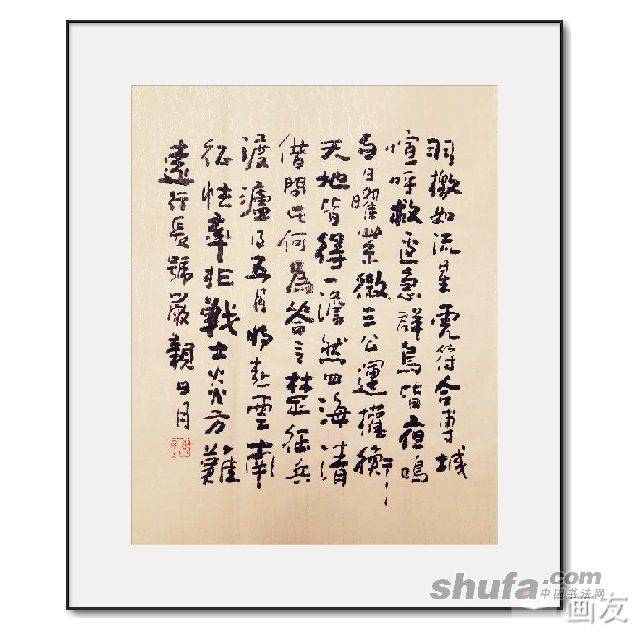 羽檄如流星虎符合専城
喧呼救邊急群鳥皆夜鳴
白日曜紫微三公運權衡
天地皆得一澹然四海清
借問此何為答言楚征兵
渡瀘及五月將赴雲南
征怯卒非戰士炎方難
遠行長號嚴親日月
shufa.com
中国书法网
画友